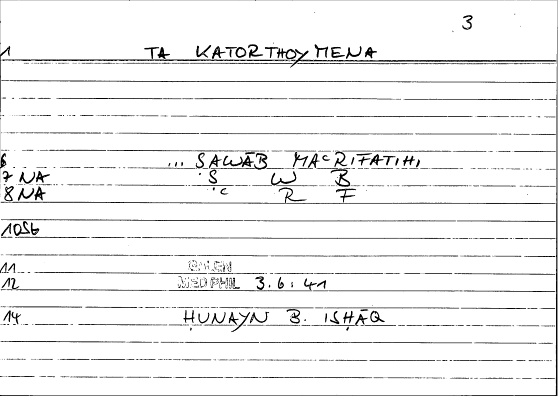 3
1 TA KATORTHOYMENA
6 ... ṢAWĀB MAᶜRIFATIHI
7 NA Ṣ W B
8 NA ᶜ R F
10 S6
11 GALEN
12 MED PHIL 3.6:41
14 ḤUNAYN B. ISḤĀQ